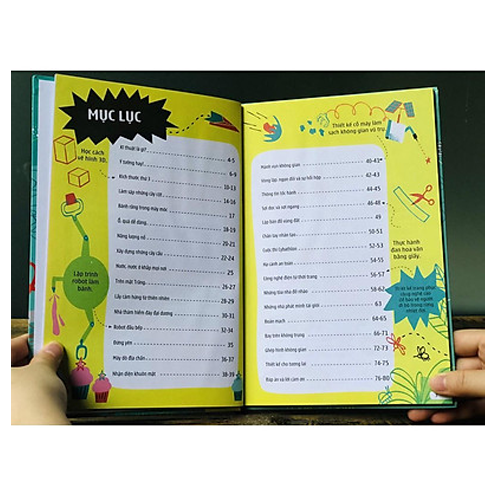 MỤC LỤC
Học cách
vẽ hình 3D.
Lập trình
robot làm
bánh.
Kĩ thuật là gì? 4-5
Ý tưởng hay! 6-9
Kích thước thứ 3 10-13
Làm sập những cây cột 14-16
Bánh răng trong máy móc 17
Ổ quá dễ dàng 18-19
Năng lượng nổ 20-21
Xây dựng những cây cầu 22-24
Nước, nước ở khắp mọi nơi 25
Trên mặt Trăng 26-27
Lấy cảm hứng từ thiên nhiên 28-29
Nhà thám hiểm đáy đại dương 30-31
Robot đầu bếp 32-34
Đứng yên 35
Máy dò địa chấn 36-37
Nhận diện khuôn mặt 38-39
Thiết kế cỗ máy làm
sạch không gian vũ trụ
Mảnh vụn không gian 40-41
Vòng lặp, ngàn dài và sự hồi hộp 42-43
Thông tin tốc hành 44-45
Sợi dọc và sợi ngang 46-48
Lập bản đồ vùng đất 49
Chân tay nhân tạo 50-51
Cuộc thi Cybathlon 52-53
Hạ cánh an toàn 54-55
Công nghệ điện tử thời trang 56-57
Những tòa nhà đồ nhàu 58-60
Những nhà phát minh cải giới 61-63
Đoản mạch 64-65
Bay trên không trung 66-71
Ghép hình không gian 72-73
Thiết kế cho tương lai 74-75
Đáp án và lời cảm ơn 76-80
Thực hành
đan hoa văn
bằng giấy.
Thiết kế trang phục
công nghệ cao